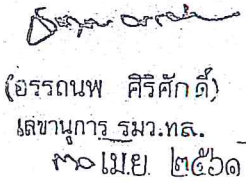 (อรรถนพ ศิริศักดิ์)
เลขานุการ รมว.ทส.
๓๐ เม.ย. ๒๕๖๑